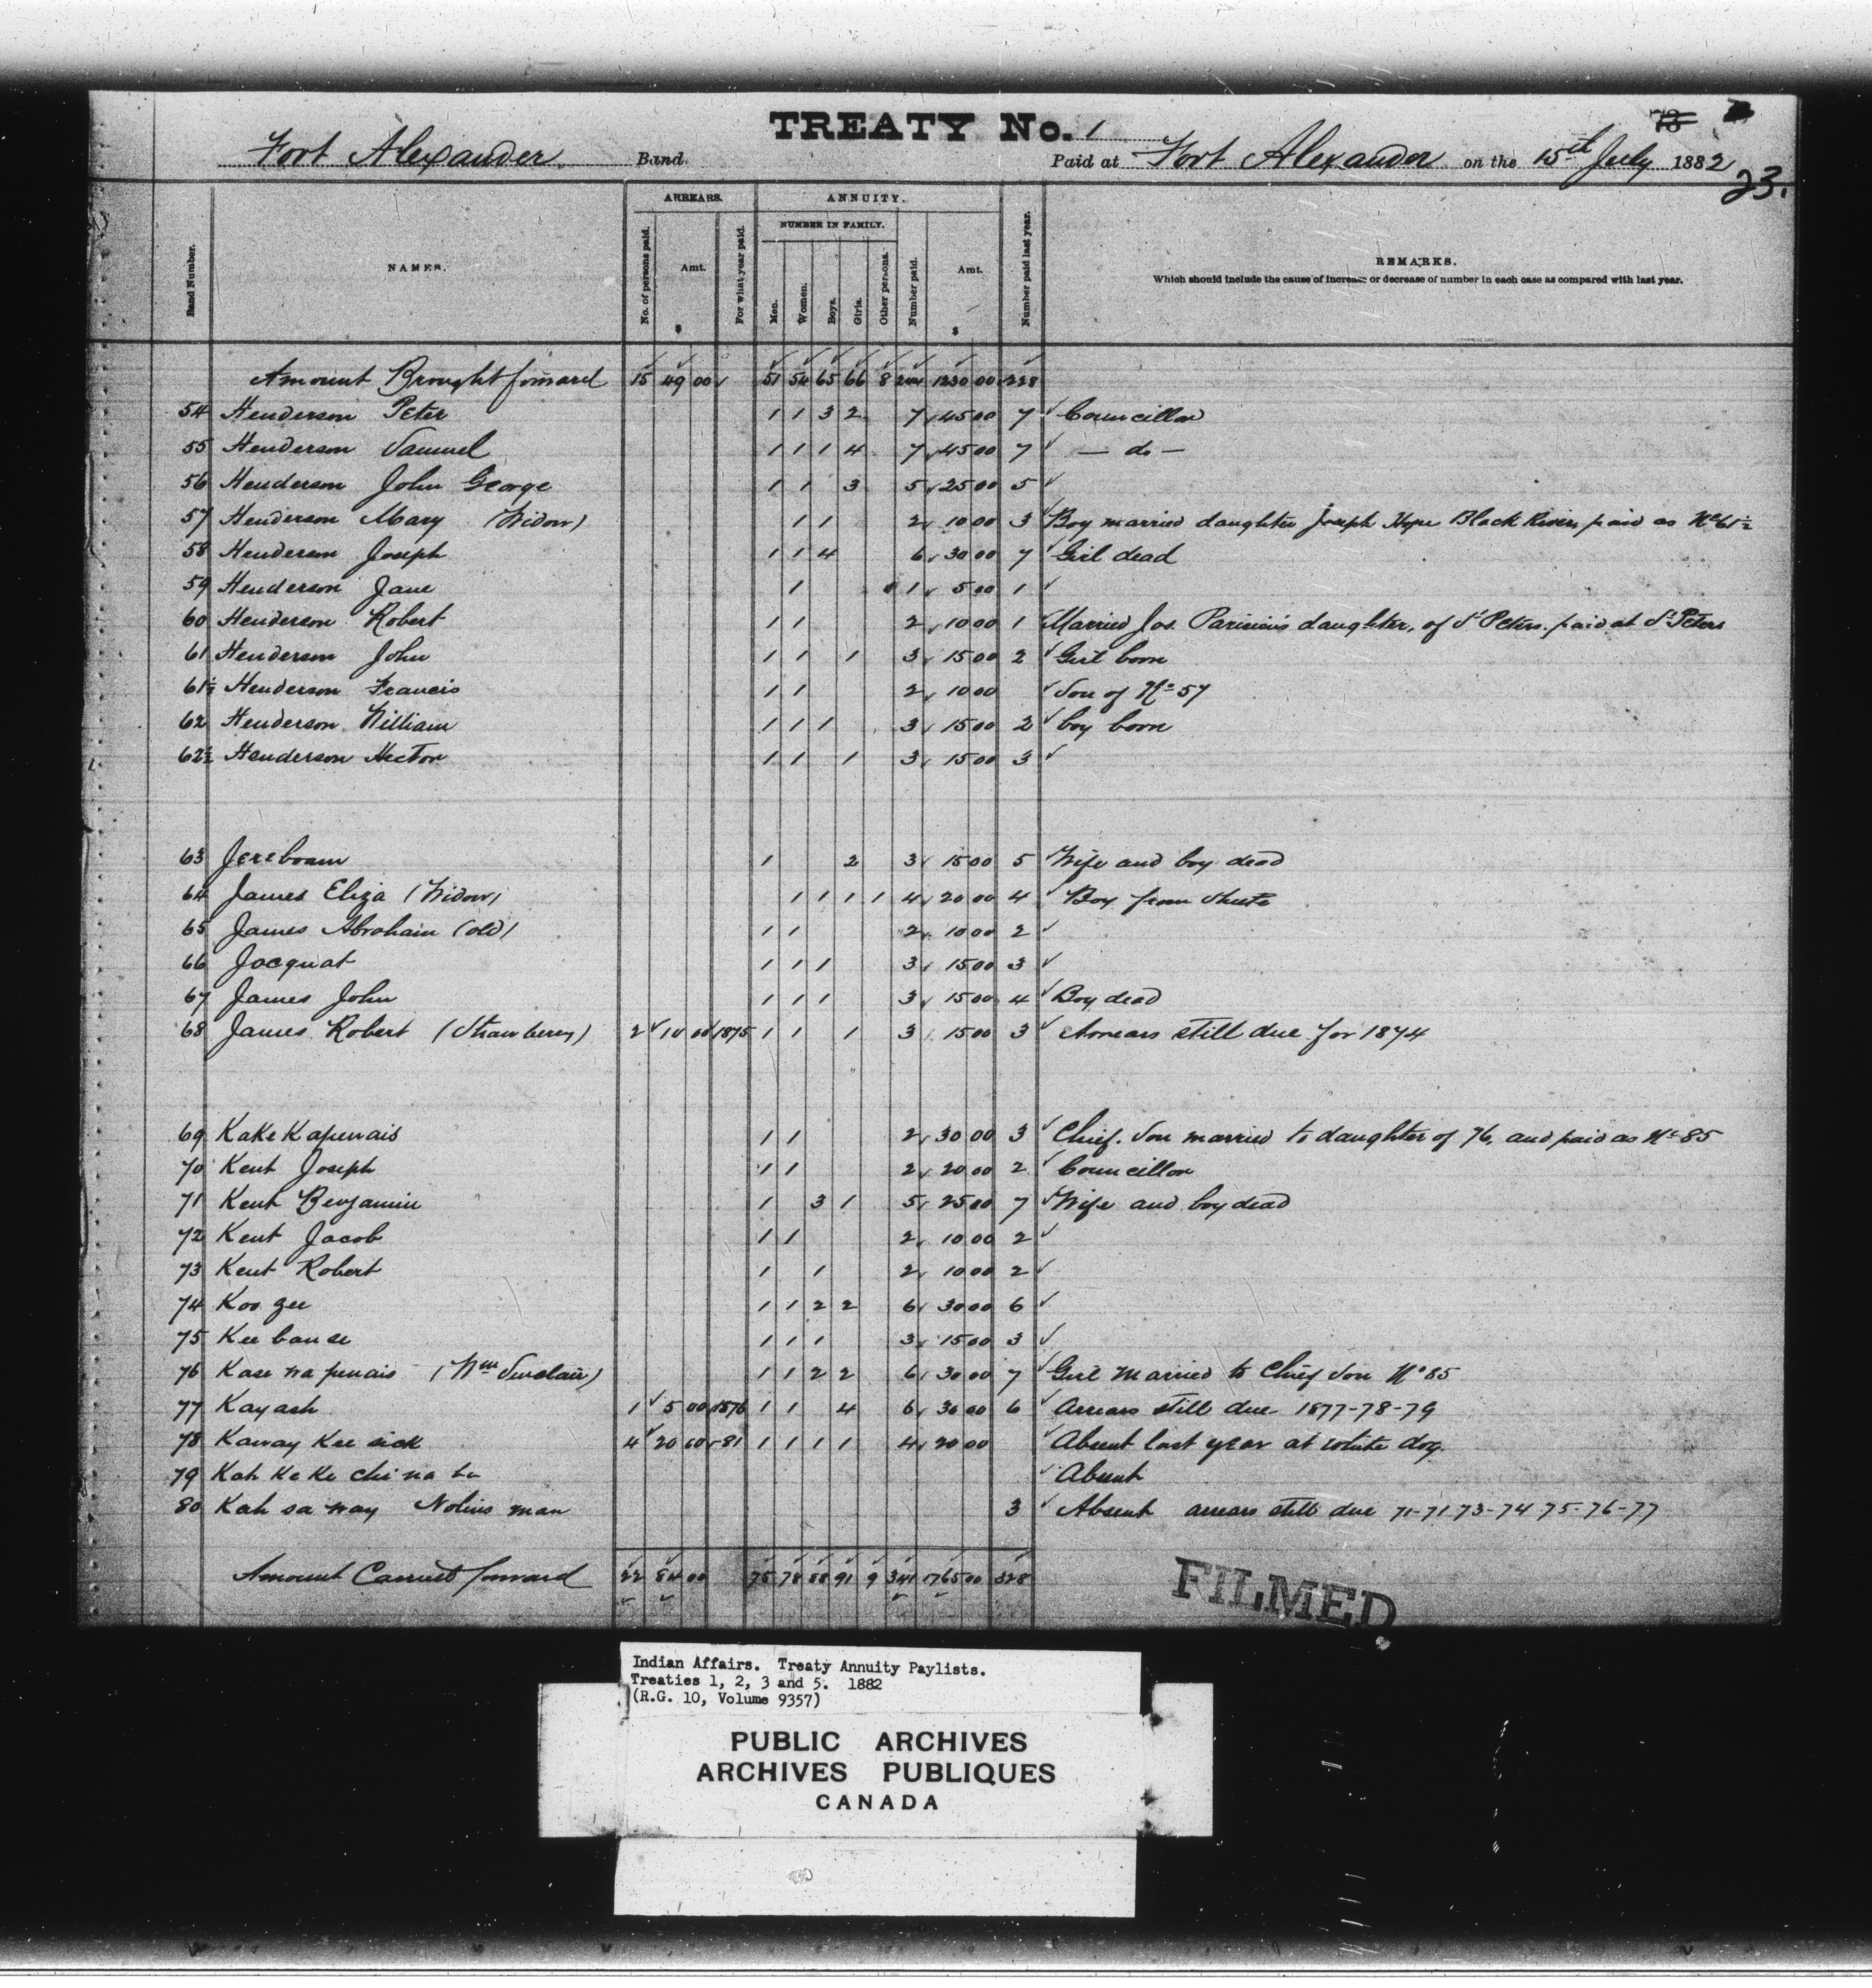 TREATY No. 1
73
Fort Alexander Band. Paid at Fort Alexander on the 15th July 1882
23.
ARREARS. ANNUITY.
NUMBER IN FAMILY.
Band Number. NAMES. No. of persons paid. Amt. $ For what year paid. Men. Women. Boys. Girls. Other persons. Number paid. Amt. $ Number paid last year. REMARKS.
Which should include the cause of increase or decrease of number in each case as compared with last year.
Amount Brought forward 15 49 00 51 54 65 66 8 244 1230 00 228
54 Henderson Peter 1 1 3 2 7 45 00 7 Councillor
55 Henderson Samuel 1 1 1 4 7 45 00 7 — do —
56 Henderson John George 1 1 3 5 25 00 5
57 Henderson Mary (Widow) 1 1 2 10 00 3 Boy married daughter Joseph Hope Black River, paid as No 61½
58 Henderson Joseph 1 1 4 6 30 00 7 Girl dead
59 Henderson Jane 1 1 5 00 1
60 Henderson Robert 1 1 2 10 00 1 Married Jos. Parisien's daughter, of St Peters. paid at St Peters
61 Henderson John 1 1 1 3 15 00 2 Girl born
61½ Henderson Francis 1 1 2 10 00 Son of No 57
62 Henderson William 1 1 1 3 15 00 2 boy born
62½ Henderson Hector 1 1 1 3 15 00 3
63 Jereboam 1 2 3 15 00 5 Wife and boy dead
64 James Eliza (Widow) 1 1 1 1 4 20 00 4 Boy from
65 James Abraham (old) 1 1 2 10 00 2
66 Jacquat 1 1 1 3 15 00 3
67 James John 1 1 1 3 15 00 4 Boy dead
68 James Robert (Strawberry) 2 10 00 1875 1 1 1 3 15 00 3 Arrears still due for 1874
69 KaKe Kapenais 1 1 2 30 00 3 Chief. Son married to daughter of 76, and paid as No 85
70 Kent Joseph 1 1 2 20 00 2 Councillor
71 Kent Benjamin 1 3 1 5 25 00 7 Wife and boy dead
72 Kent Jacob 1 1 2 10 00 2
73 Kent Robert 1 1 2 10 00 2
74 Koo zee 1 1 2 2 6 30 00 6
75 Kee bause 1 1 1 3 15 00 3
76 Kase na penais (Wm Sinclair) 1 1 2 2 6 30 00 7 Girl married to Chief Son No 85
77 Kayash 1 5 00 1876 1 1 4 6 30 00 6 Arrears still due 1877-78-79
78 Kaway Kee sick 4 20 00 81 1 1 1 1 4 20 00 Absent last year at white dog.
79 Kah Ke Ke chi na Absent
80 Kah sa way Nolins man 3 Absent arrears still due 71-71 73-74 75-76-77
Amount Carried forward 22 84 00 75 78 88 91 9 341 1765 00 328
FILMED
Indian Affairs. Treaty Annuity Paylists.
Treaties 1, 2, 3 and 5. 1882
(R.G. 10, Volume 9357)
PUBLIC ARCHIVES
ARCHIVES PUBLIQUES
CANADA